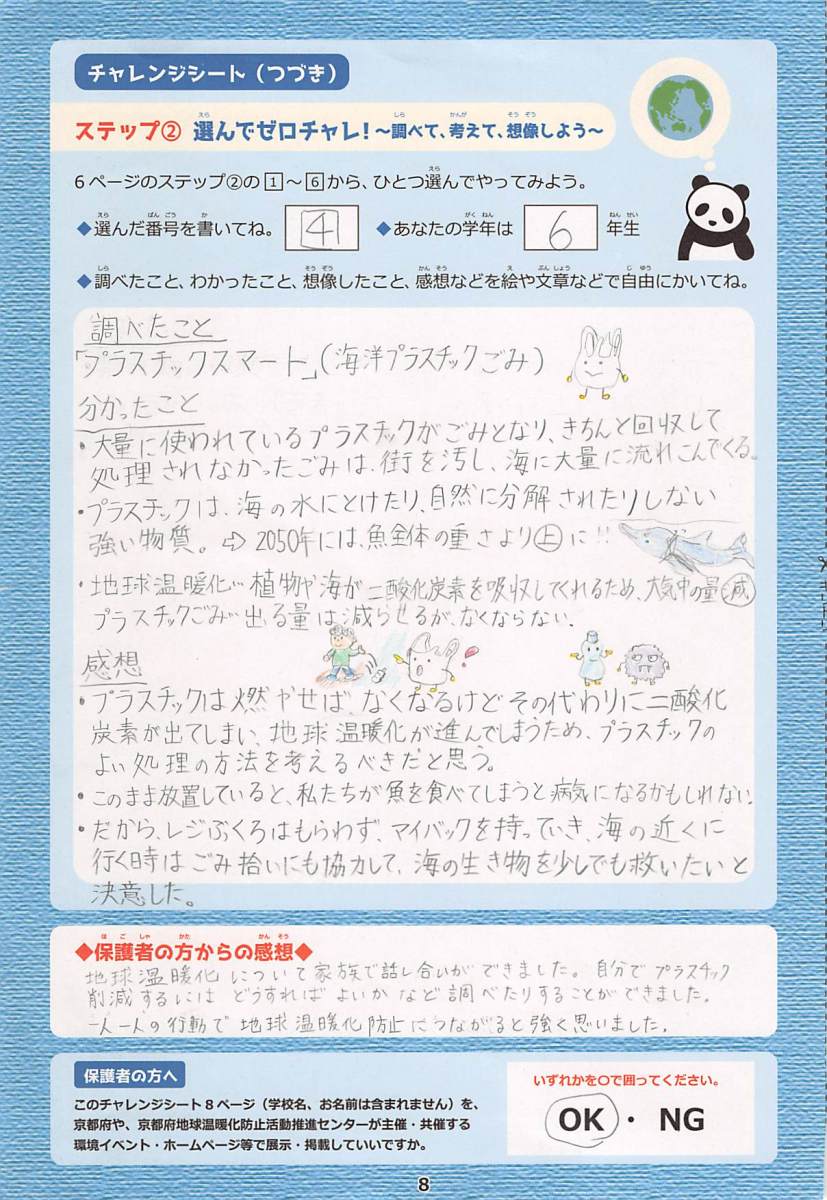 チャレンジシート（つづき）
ステップ② 選んでゼロチャレ！～調べて、考えて、想像しよう～
6ページのステップ②の1～6から、ひとつ選んでやってみよう。
◆選んだ番号を書いてね。 4 ◆あなたの学年は 6 年生
◆調べたこと、わかったこと、想像したこと、感想などを絵や文章などで自由にかいてね。
調べたこと
「プラスチックスマート」（海洋プラスチックごみ）
分かったこと
・大量に使われているプラスチックがごみとなり、きちんと回収して
処理されなかったごみは、街を汚し、海に大量に流れこんでくる。
・プラスチックは、海の水にとけたり、自然に分解されたりしない
強い物質。⇨2050年には、魚全体の重さより上に!!
・地球温暖化…植物や海が二酸化炭素を吸収してくれるため、大気中の量減
プラスチックごみ…出る量は減らせるが、なくならない。
感想
・プラスチックは燃やせば、なくなるけどその代わりに二酸化
炭素が出てしまい、地球温暖化が進んでしまうため、プラスチックの
よい処理の方法を考えるべきだと思う。
・このまま放置していると、私たちが魚を食べてしまうと病気になるかもしれない。
・だから、レジぶくろはもらわず、マイバックを持っていき、海の近くに
行く時はごみ拾いにも協力して、海の生き物を少しでも救いたいと
決意した。
◆保護者の方からの感想◆
地球温暖化について家族で話し合いができました。自分でプラスチック
削減するにはどうすればよいかなど調べたりすることができました。
一人一人の行動で地球温暖化防止につながると強く思いました。
保護者の方へ
このチャレンジシート8ページ（学校名、お名前は含まれません）を、
京都府や、京都府地球温暖化防止活動推進センターが主催・共催する
環境イベント・ホームページ等で展示・掲載していいですか。
いずれかを○で囲ってください。
OK・NG
8